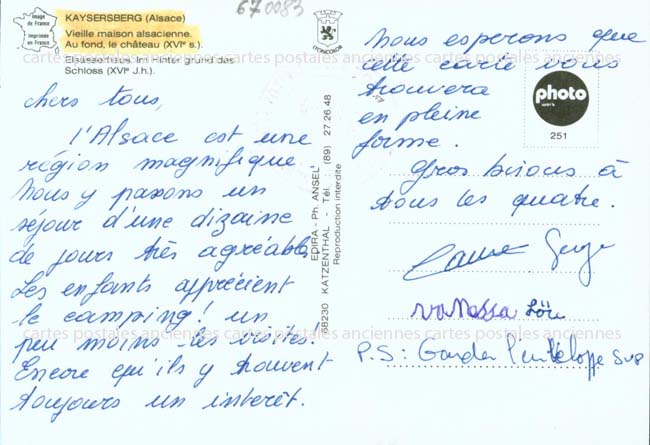 Image
de France
Imprimée
en France
KAYSERSBERG (Alsace)
Vieille maison alsacienne.
Au fond, le château (XVIe s.).
Elsässerhaus. Im Hinter grund das
Schloss (XVI J.h.).
670083
LYONCOLOR
cartes postales anciennes cartes postales anciennes cartes postales anciennes
chers tous,
l'Alsace est une
région magnifique
Nous y passons un
séjour d'une dizaine
de jours très agréables
Les enfants apprécient
le camping! un
peu moins les visites!
Encore qu'ils y trouvent
toujours un intérêt.
EDIRA - Ph. ANSEL
68230 KATZENTHAL - Tél. : (89) 27 26 48
Reproduction interdite
Nous esperons que
cette carte vous
trouvera
en pleine
forme.
Gros bisous à
tous les quatre.
photo
251
Laure Serge
vanessa Löïc
cartes postales anciennes cartes postales anciennes cartes postales anciennes
P.S: Garder l'enveloppe SVP